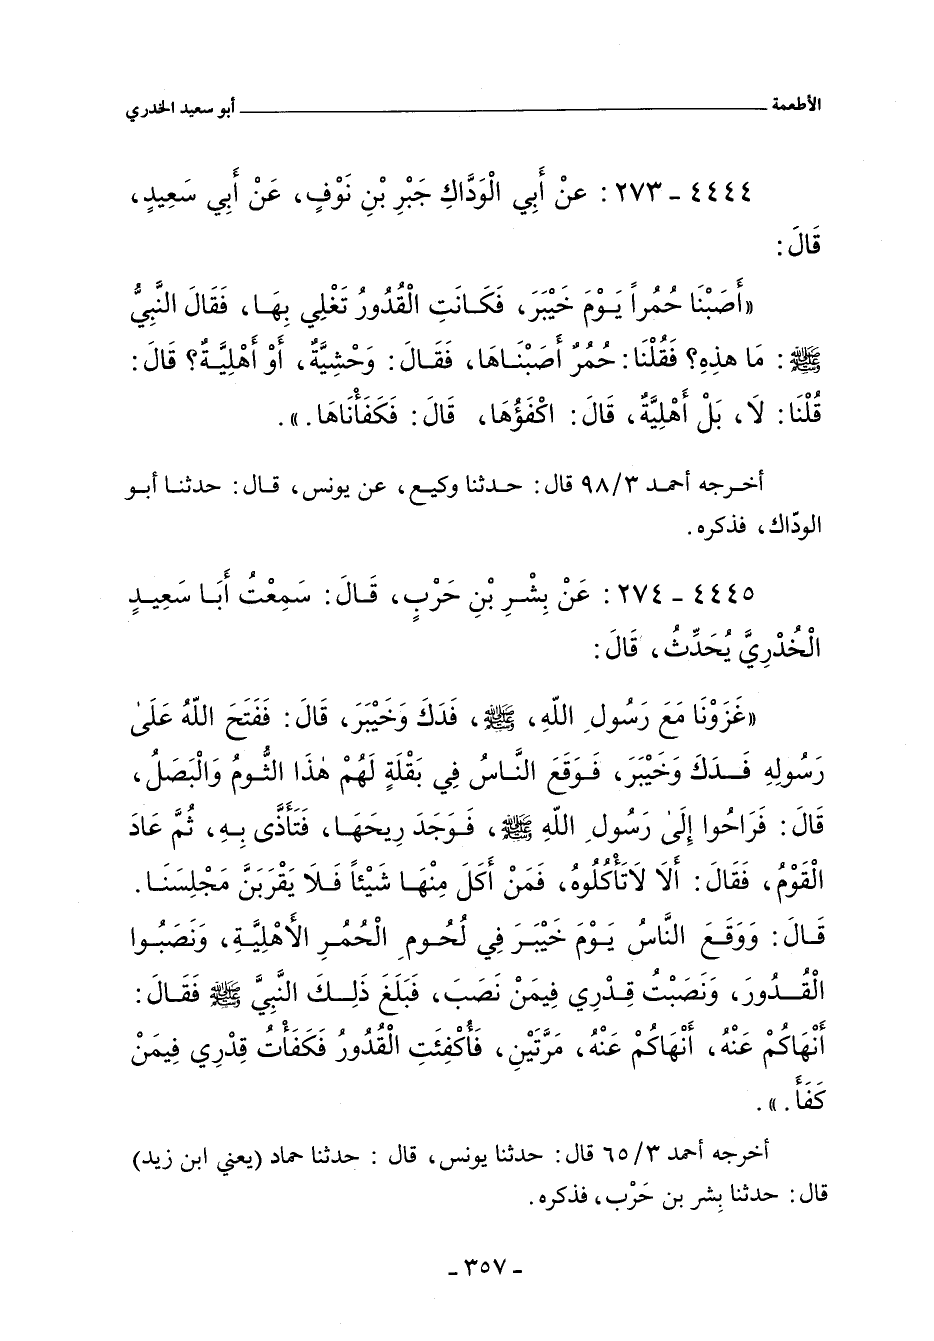 الأطعمة ــــــــــــــــــــــــــــــــــــــــ أبو سعيد الخدري
٤٤٤٤ ـ ٢٧٣ : عنْ أَبِي الْوَدَّاكِ جَبْرِ بْنِ نَوْفٍ، عَنْ أَبِي سَعِيدٍ،
قَالَ :
«أَصَبْنَا حُمُراً يَوْمَ خَيْبَرَ، فَكَانَتِ الْقُدُورُ تَغْلِي بِهَا، فَقَالَ النَّبِيُّ
ﷺ : مَا هذِهِ؟ فَقُلْنَا : حُمُرٌ أَصَبْنَاهَا، فَقَالَ : وَحْشِيَّةٌ، أَوْ أَهْلِيَّةٌ؟ قَالَ :
قُلْنَا : لَا، بَلْ أَهْلِيَّةٌ، قَالَ : اكْفَؤُهَا، قَالَ : فَكَفَأْنَاهَا . » .
أخرجه أحمد ٩٨/٣ قال : حدثنا وكيع، عن يونس، قال : حدثنا أبو
الودّاك، فذكره .
٤٤٤٥ ـ ٢٧٤ : عَنْ بِشْرِ بْنِ حَرْبٍ، قَالَ : سَمِعْتُ أَبَا سَعِيدٍ
الْخُدْرِيَّ يُحَدِّثُ، قَالَ :
«غَزَوْنَا مَعَ رَسُولِ اللّهِ، ﷺ، فَدَكَ وَخَيْبَرَ، قَالَ : فَفَتَحَ اللّهُ عَلَىٰ
رَسُولِهِ فَدَكَ وَخَيْبَرَ، فَوَقَعَ النَّاسُ فِي بَقْلَةٍ لَهُمْ هٰذَا الثُّومُ وَالْبَصَلُ،
قَالَ : فَرَاحُوا إِلَىٰ رَسُولِ اللّهِ ﷺ، فَوَجَدَ رِيحَهَا، فَتَأَذَّى بِهِ، ثُمَّ عَادَ
الْقَوْمُ، فَقَالَ : أَلَا لَاتَأْكُلُوهُ، فَمَنْ أَكَلَ مِنْهَا شَيْئاً فَلَا يَقْرَبَنَّ مَجْلِسَنَا .
قَالَ : وَوَقَعَ النَّاسُ يَوْمَ خَيْبَرَ فِي لُحُومِ الْحُمُرِ الأَهْلِيَّةِ، وَنَصَبُوا
الْقُدُورَ، وَنَصَبْتُ قِدْرِي فِيمَنْ نَصَبَ، فَبَلَغَ ذَلِكَ النَّبِيَّ ﷺ فَقَالَ :
أَنْهَاكُمْ عَنْهُ، أَنْهَاكُمْ عَنْهُ، مَرَّتَيْنِ، فَأُكْفِئَتِ الْقُدُورُ فَكَفَأْتُ قِدْرِي فِيمَنْ
كَفَأَ . » .
أخرجه أحمد ٦٥/٣ قال : حدثنا يونس، قال : حدثنا حماد (يعني ابن زيد)
قال : حدثنا بِشر بن حَرْب، فذكره .
ـ ٣٥٧ ـ